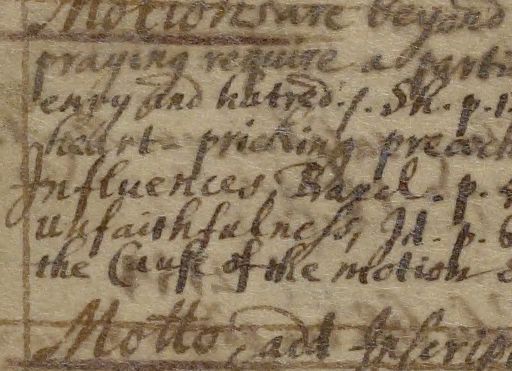 Motions are beyond
praying require a parti
envy and hatred. /. Sh. p. 1
heart-pricking preach
Influences, p. 4
Unfaithfulness, Id. p. 6
the Cause of the motion
Motto, and Inscrip